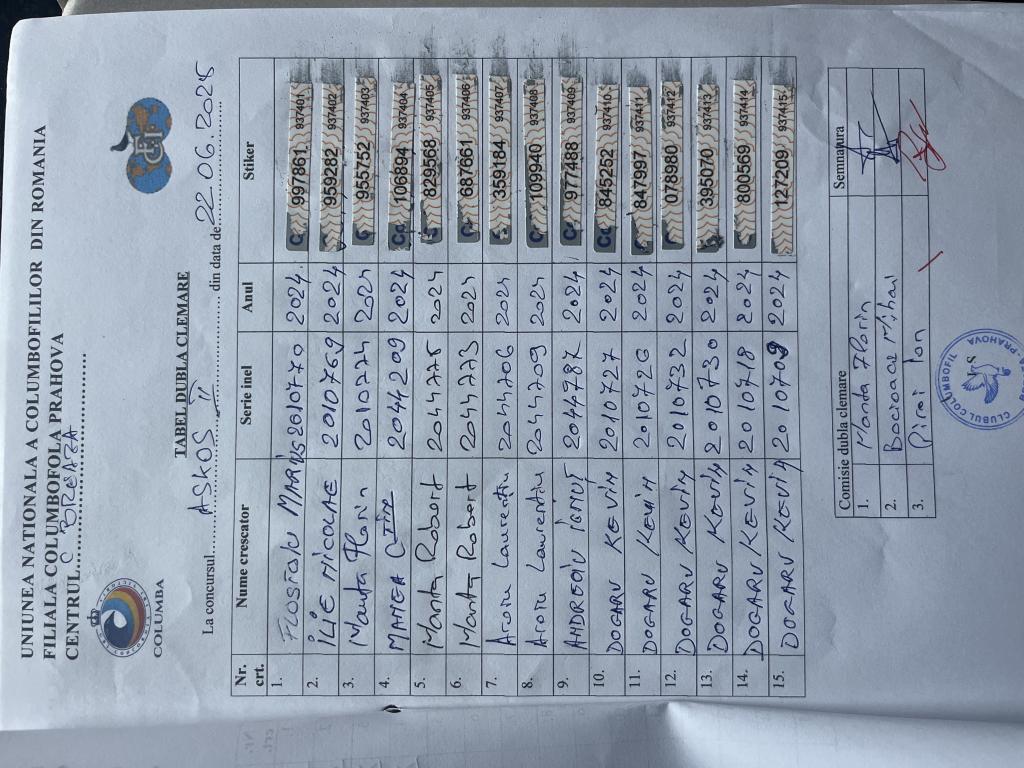 UNIUNEA NATIONALA A COLUMBOFILILOR DIN ROMANIA
FILIALA COLUMBOFOLA PRAHOVA
CENTRUL.....C BREAZA..............
COLUMBA
TABEL DUBLA CLEMARE
La concursul............ASKOS II............ din data de 22.06.2025
Nr. crt. Nume crescator Serie inel Anul Stiker
1. MARIUS 2010770 2024 C 997861 937401
2. ILIE NICOLAE 2010769 2024 959282 937402
3. Manta Florin 2010774 2024 955752 937403
4. MAMEA 2044209 2024 Co 106894 937404
5. Manta Robert 2044775 2024 829568 937405
6. Manta Robert 2044773 2024 687661 937406
7. Laurentiu 2044706 2024 359184 937407
8. Laurentiu 2044709 2024 109940 937408
9. ANDREOIU IONUT 2044787 2024 977488 937409
10. DOGARU KEVIN 2010727 2024 Co 845252 937410
11. DOGARU KEVIN 2010726 2024 847997 937411
12. DOGARU KEVIN 2010732 2024 078980 937412
13. DOGARU KEVIN 2010730 2024 395070 937413
14. DOGARU KEVIN 2010718 2024 800569 937414
15. DOGARU KEVIN 2010709 2024 127209 937415
Comisie dubla clemare Semnatura
1. Manda Florin
2. Mihai
3. Piroi Ion
CLUBUL COLUMBOFIL
PRAHOVA